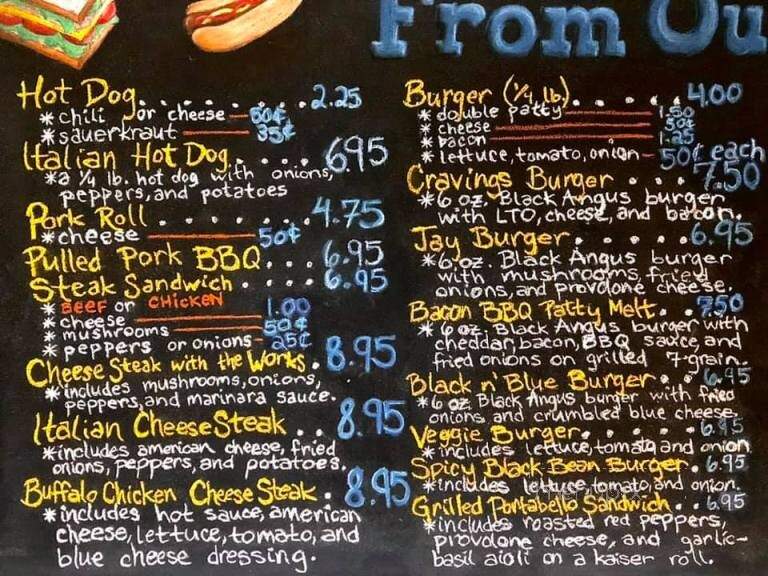 From Ou
Hot Dog.......2.25
*chili or cheese — 50¢
*sauerkraut — 35¢
Italian Hot Dog.....6.95
*a ¼ lb. hot dog with onions,
peppers, and potatoes
Pork Roll.......4.75
*cheese — 50¢
Pulled Pork BBQ....6.95
Steak Sandwich.....6.95
*BEEF or CHICKEN
*cheese — 1.00
*mushrooms — 50¢
*peppers or onions — 25¢
Cheese Steak with the Works.8.95
*includes mushrooms, onions,
peppers, and marinara sauce.
Italian Cheese Steak..8.95
*includes american cheese, fried
onions, peppers, and potatoes.
Buffalo Chicken Cheese Steak.8.95
*includes hot sauce, american
cheese, lettuce, tomato, and
blue cheese dressing.
Burger (¼ lb)......4.00
*double patty — 1.50
*cheese — 50¢
*bacon — 1.25
*lettuce, tomato, onion — 50¢ each
Cravings Burger....7.50
*6 oz. Black Angus burger
with LTO, cheese, and bacon.
Jay Burger......6.95
*6 oz. Black Angus burger
with mushrooms, fried
onions, and provolone cheese.
Bacon BBQ Patty Melt..7.50
*6 oz. Black Angus burger with
cheddar, bacon, BBQ sauce, and
fried onions on grilled 7-grain.
Black n' Blue Burger...6.95
*6 oz. Black Angus burger with fried
onions and crumbled blue cheese.
Veggie Burger......6.95
*includes lettuce, tomato and onion
Spicy Black Bean Burger..6.95
*includes lettuce, tomato, and onion.
Grilled Portabello Sandwich..6.95
*includes roasted red peppers,
provolone cheese, and garlic-
basil aioli on a kaiser roll.